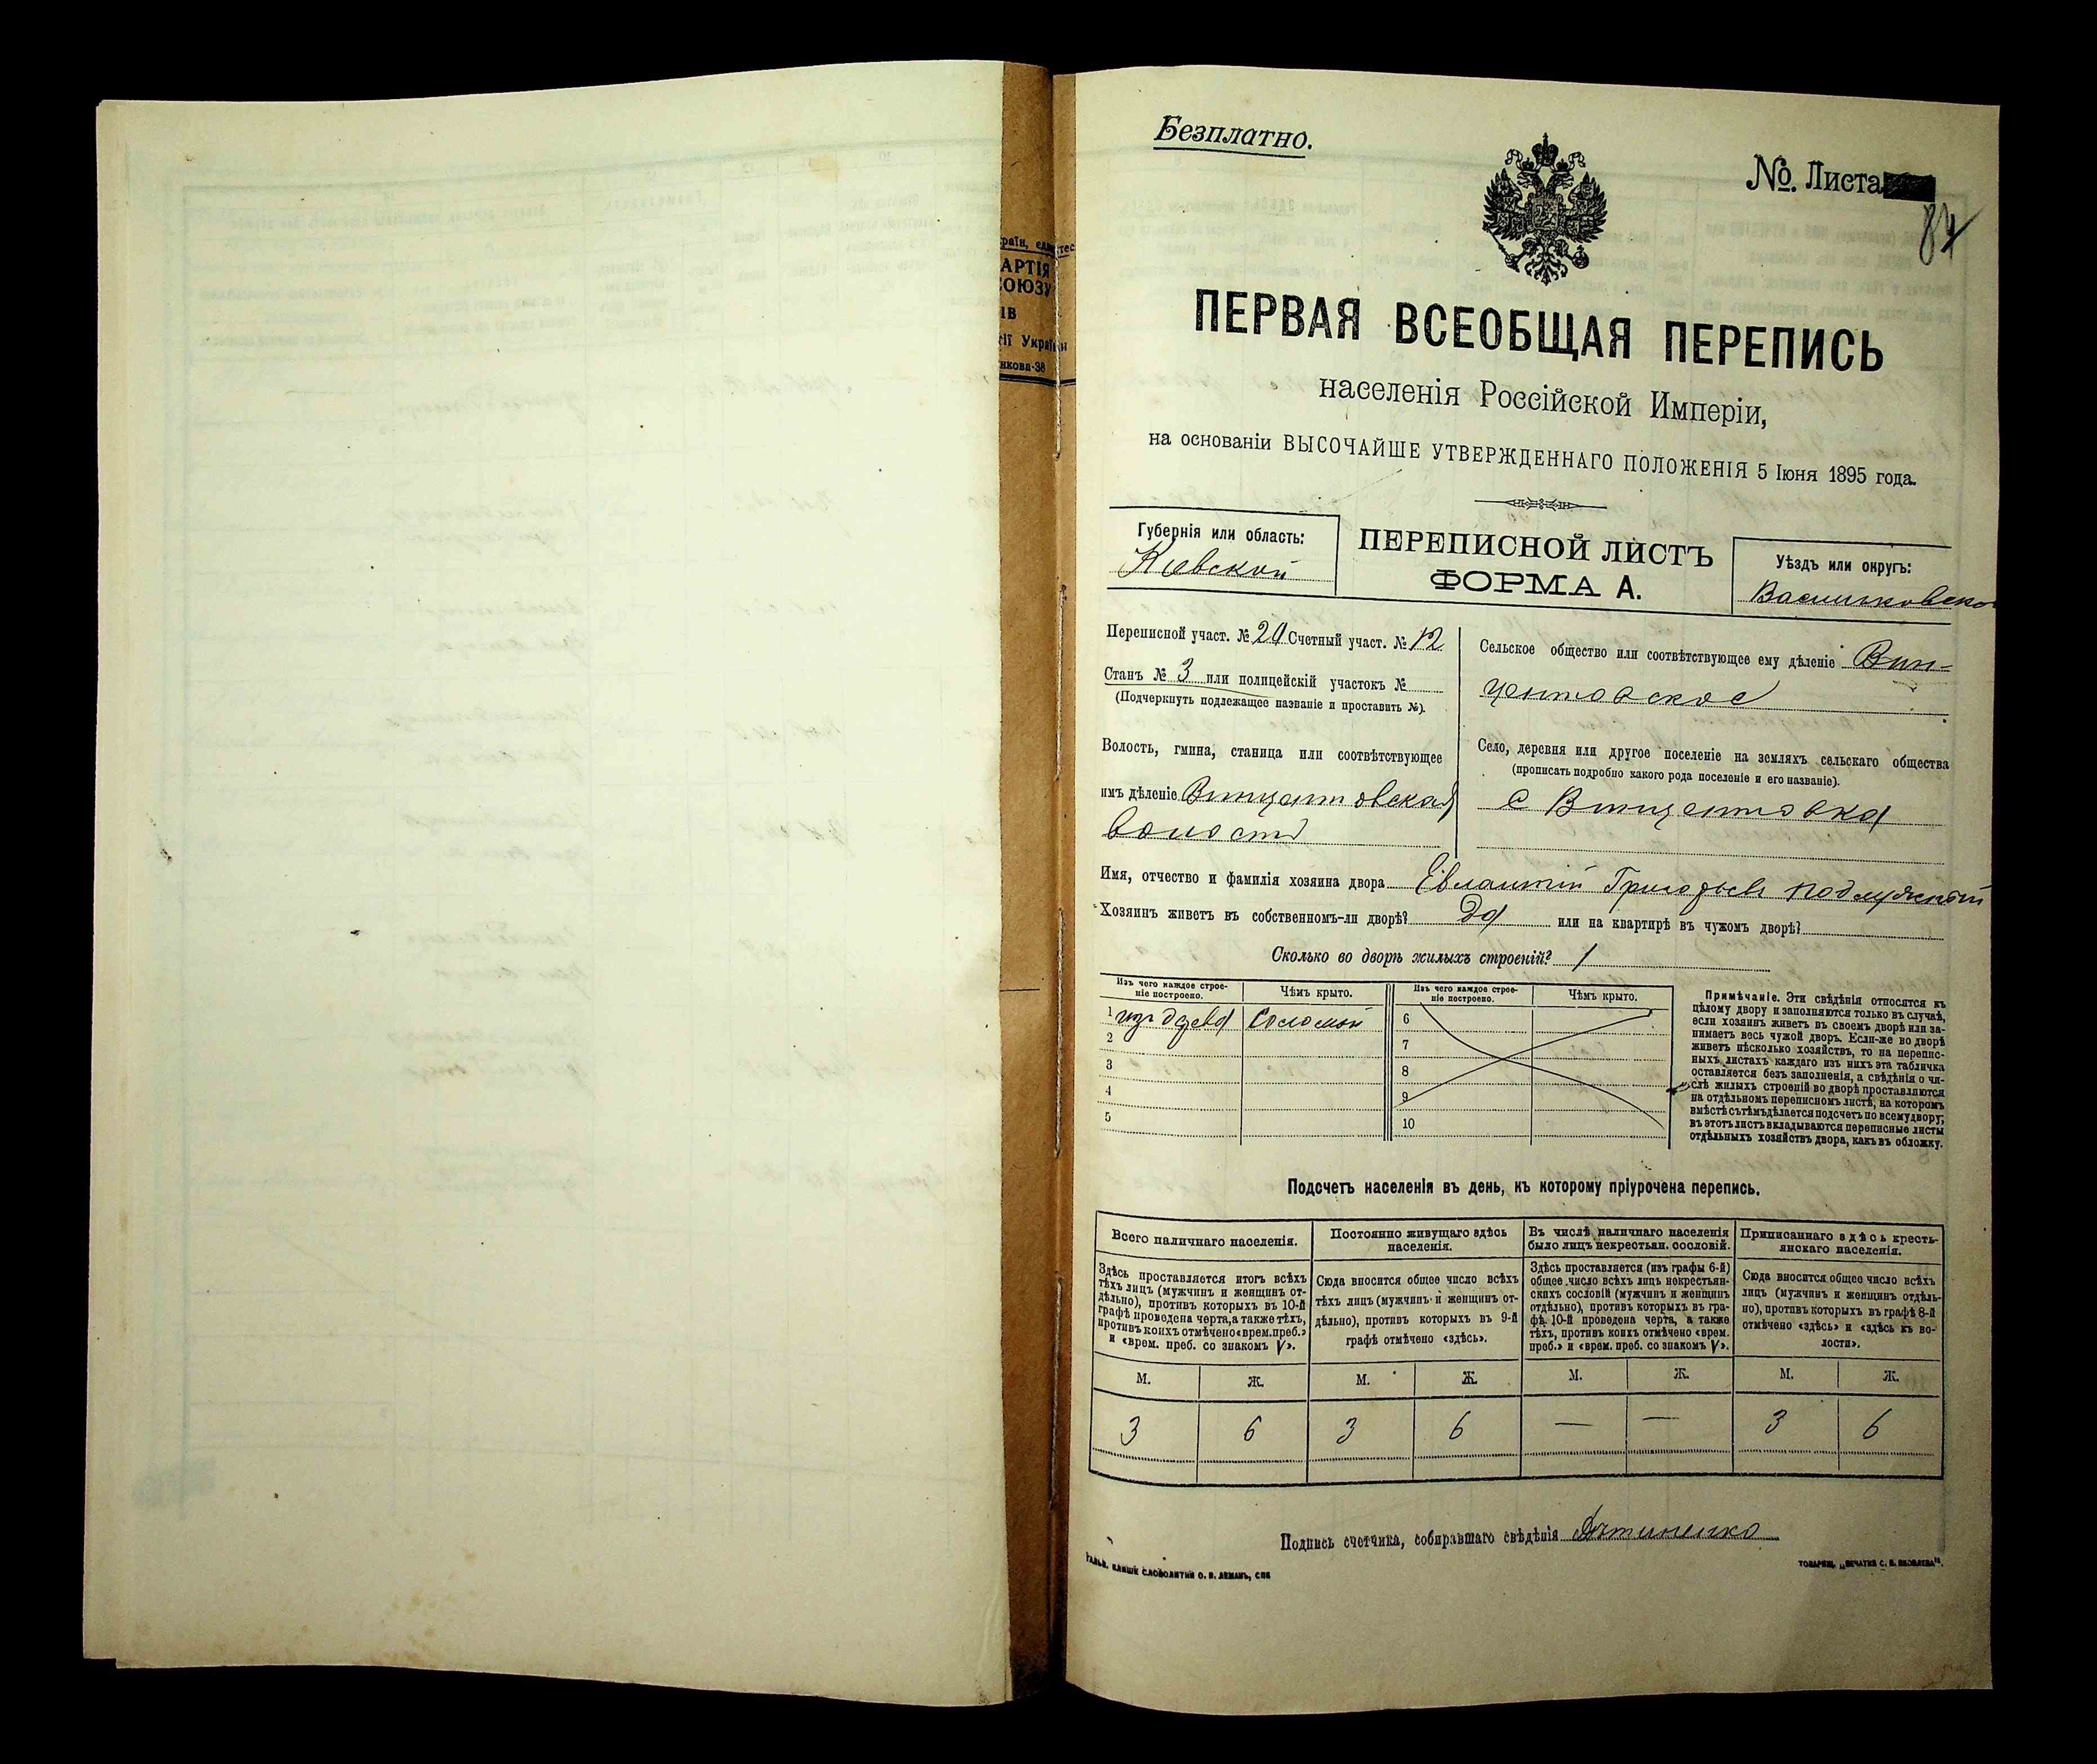 Безплатно.
№. Листа
84
ПЕРВАЯ ВСЕОБЩАЯ ПЕРЕПИСЬ
населенія Россійской Имперіи,
на основаніи ВЫСОЧАЙШЕ УТВЕРЖДЕННАГО ПОЛОЖЕНІЯ 5 Іюня 1895 года.
Губернія или область:
Кіевской
ПЕРЕПИСНОЙ ЛИСТЪ
ФОРМА А.
Уѣздъ или округъ:
Васильковско
Переписной участ. № 20 Счетный участ. № 12
Станъ № 3 или полицейскій участокъ №
(Подчеркнуть подлежащее названіе и проставить №).
Волость, гмина, станица или соотвѣтствующее
имъ дѣленіе Винцентовская
волость
Сельское общество или соотвѣтствующее ему дѣленіе Вин-
центовское
Село, деревня или другое поселеніе на земляхъ сельскаго общества
(прописать подробно какого рода поселеніе и его названіе).
с Винцентовка
Имя, отчество и фамилія хозяина двора Евлампій Григорьевъ Подлужный
Хозяинъ живетъ въ собственномъ-ли дворѣ? Да или на квартирѣ въ чужомъ дворѣ?
Сколько во дворѣ жилыхъ строеній? 1
Изъ чего каждое строе-
ніе построено.
Чѣмъ крыто.
Изъ чего каждое строе-
ніе построено.
Чѣмъ крыто.
1 изъ дерева Соломой
2
3
4
5
6
7
8
9
10
Примѣчаніе. Эти свѣдѣнія относятся къ
цѣлому двору и заполняются только въ случаѣ,
если хозяинъ живетъ въ своемъ дворѣ или за-
нимаетъ весь чужой дворъ. Если-же во дворѣ
живетъ нѣсколько хозяйствъ, то на перепис-
ныхъ листахъ каждаго изъ нихъ эта табличка
оставляется безъ заполненія, а свѣдѣнія о чи-
слѣ жилыхъ строеній во дворѣ проставляются
на отдѣльномъ переписномъ листѣ, на которомъ
вмѣстѣ съ тѣмъ дѣлается подсчетъ по всему двору;
въ этотъ листъ вкладываются переписные листы
отдѣльныхъ хозяйствъ двора, какъ въ обложку.
Подсчетъ населенія въ день, къ которому пріурочена перепись.
Всего наличнаго населенія.
Здѣсь проставляется итогъ всѣхъ
тѣхъ лицъ (мужчинъ и женщинъ от-
дѣльно), противъ которыхъ въ 10-й
графѣ проведена черта, а также тѣхъ,
противъ коихъ отмѣчено «врем. преб.»
и «врем. преб. со знакомъ V».
Постоянно живущаго здѣсь
населенія.
Сюда вносится общее число всѣхъ
тѣхъ лицъ (мужчинъ и женщинъ от-
дѣльно), противъ которыхъ въ 9-й
графѣ отмѣчено «здѣсь».
Въ числѣ наличнаго населенія
было лицъ некрестьян. сословій.
Здѣсь проставляется (изъ графы 6-й)
общее число всѣхъ лицъ некрестьян-
скихъ сословій (мужчинъ и женщинъ
отдѣльно), противъ которыхъ въ гра-
фѣ 10-й проведена черта, а также
тѣхъ, противъ коихъ отмѣчено «врем.
преб.» и «врем. преб. со знакомъ V».
Приписаннаго здѣсь кресть-
янскаго населенія.
Сюда вносится общее число всѣхъ
лицъ (мужчинъ и женщинъ отдѣль-
но), противъ которыхъ въ графѣ 8-й
отмѣчено «здѣсь» и «здѣсь къ во-
лости».
М. Ж. М. Ж. М. Ж. М. Ж.
3 6 3 6 — — 3 6
Подпись счетчика, собиравшаго свѣдѣнія
КЛИШЕ СЛОВОЛИТНИ О. И. ЛЕМАНЪ, СПБ
ТОВАРИЩ. „ПЕЧАТНЯ С. П. ЯКОВЛЕВА".
АРТІЯ
СОЮЗУ
ІВ
ії Україн